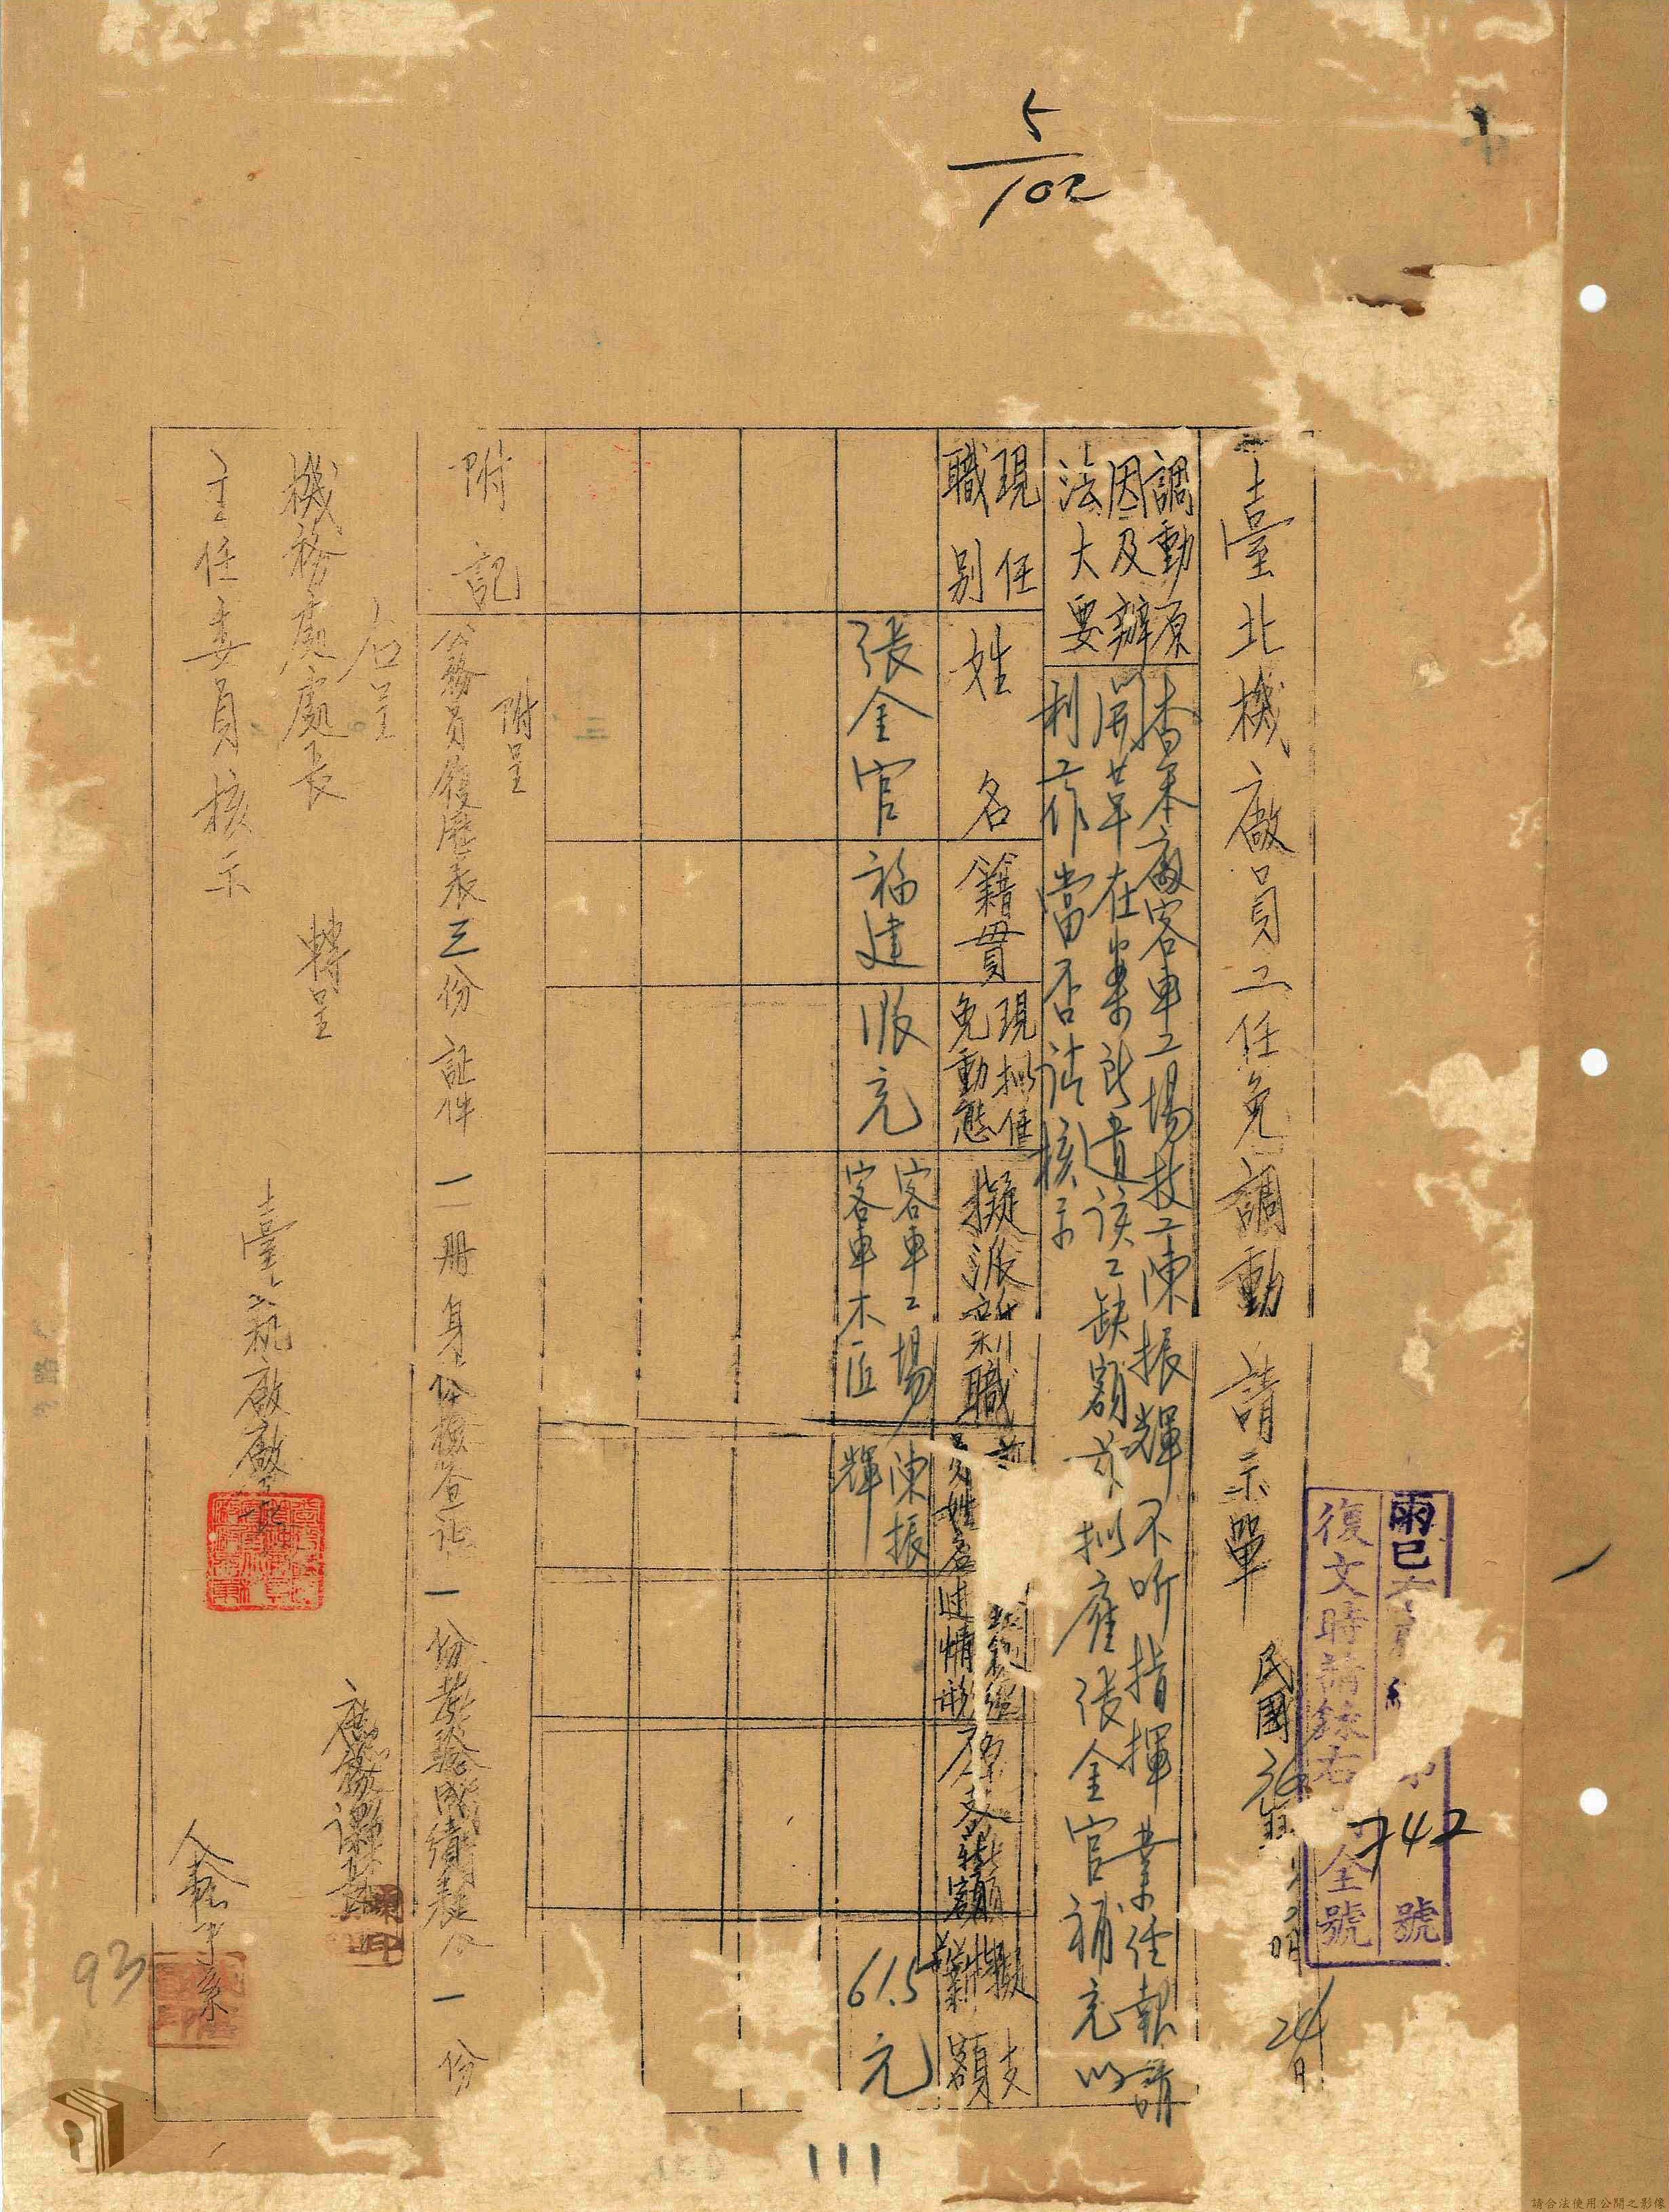 5/102
臺北機廠員工任免調動請示單
民國36年
24日
復文時請錄右
全號
號
742
調動原
因及辦
法大要
查本廠客車工場技工陳振輝不听指揮業經報請
開革在案所遺該工缺額茲拟雇張金官補充以
利工作當否請核示
現任
職別
姓名
籍貫
現拟任
免動態
擬派
職
姓名
情形
原支薪額
擬支
薪額
張金官
福建
派充
客車工場
客車木匠
陳振
輝
61.5元
附記
附呈
公務員履歷表三份 証件一冊 身份檢查証一份 考驗成績表一份
右呈
機務處處長 轉呈
主任委員核示
93
111
請合法使用公開之影像